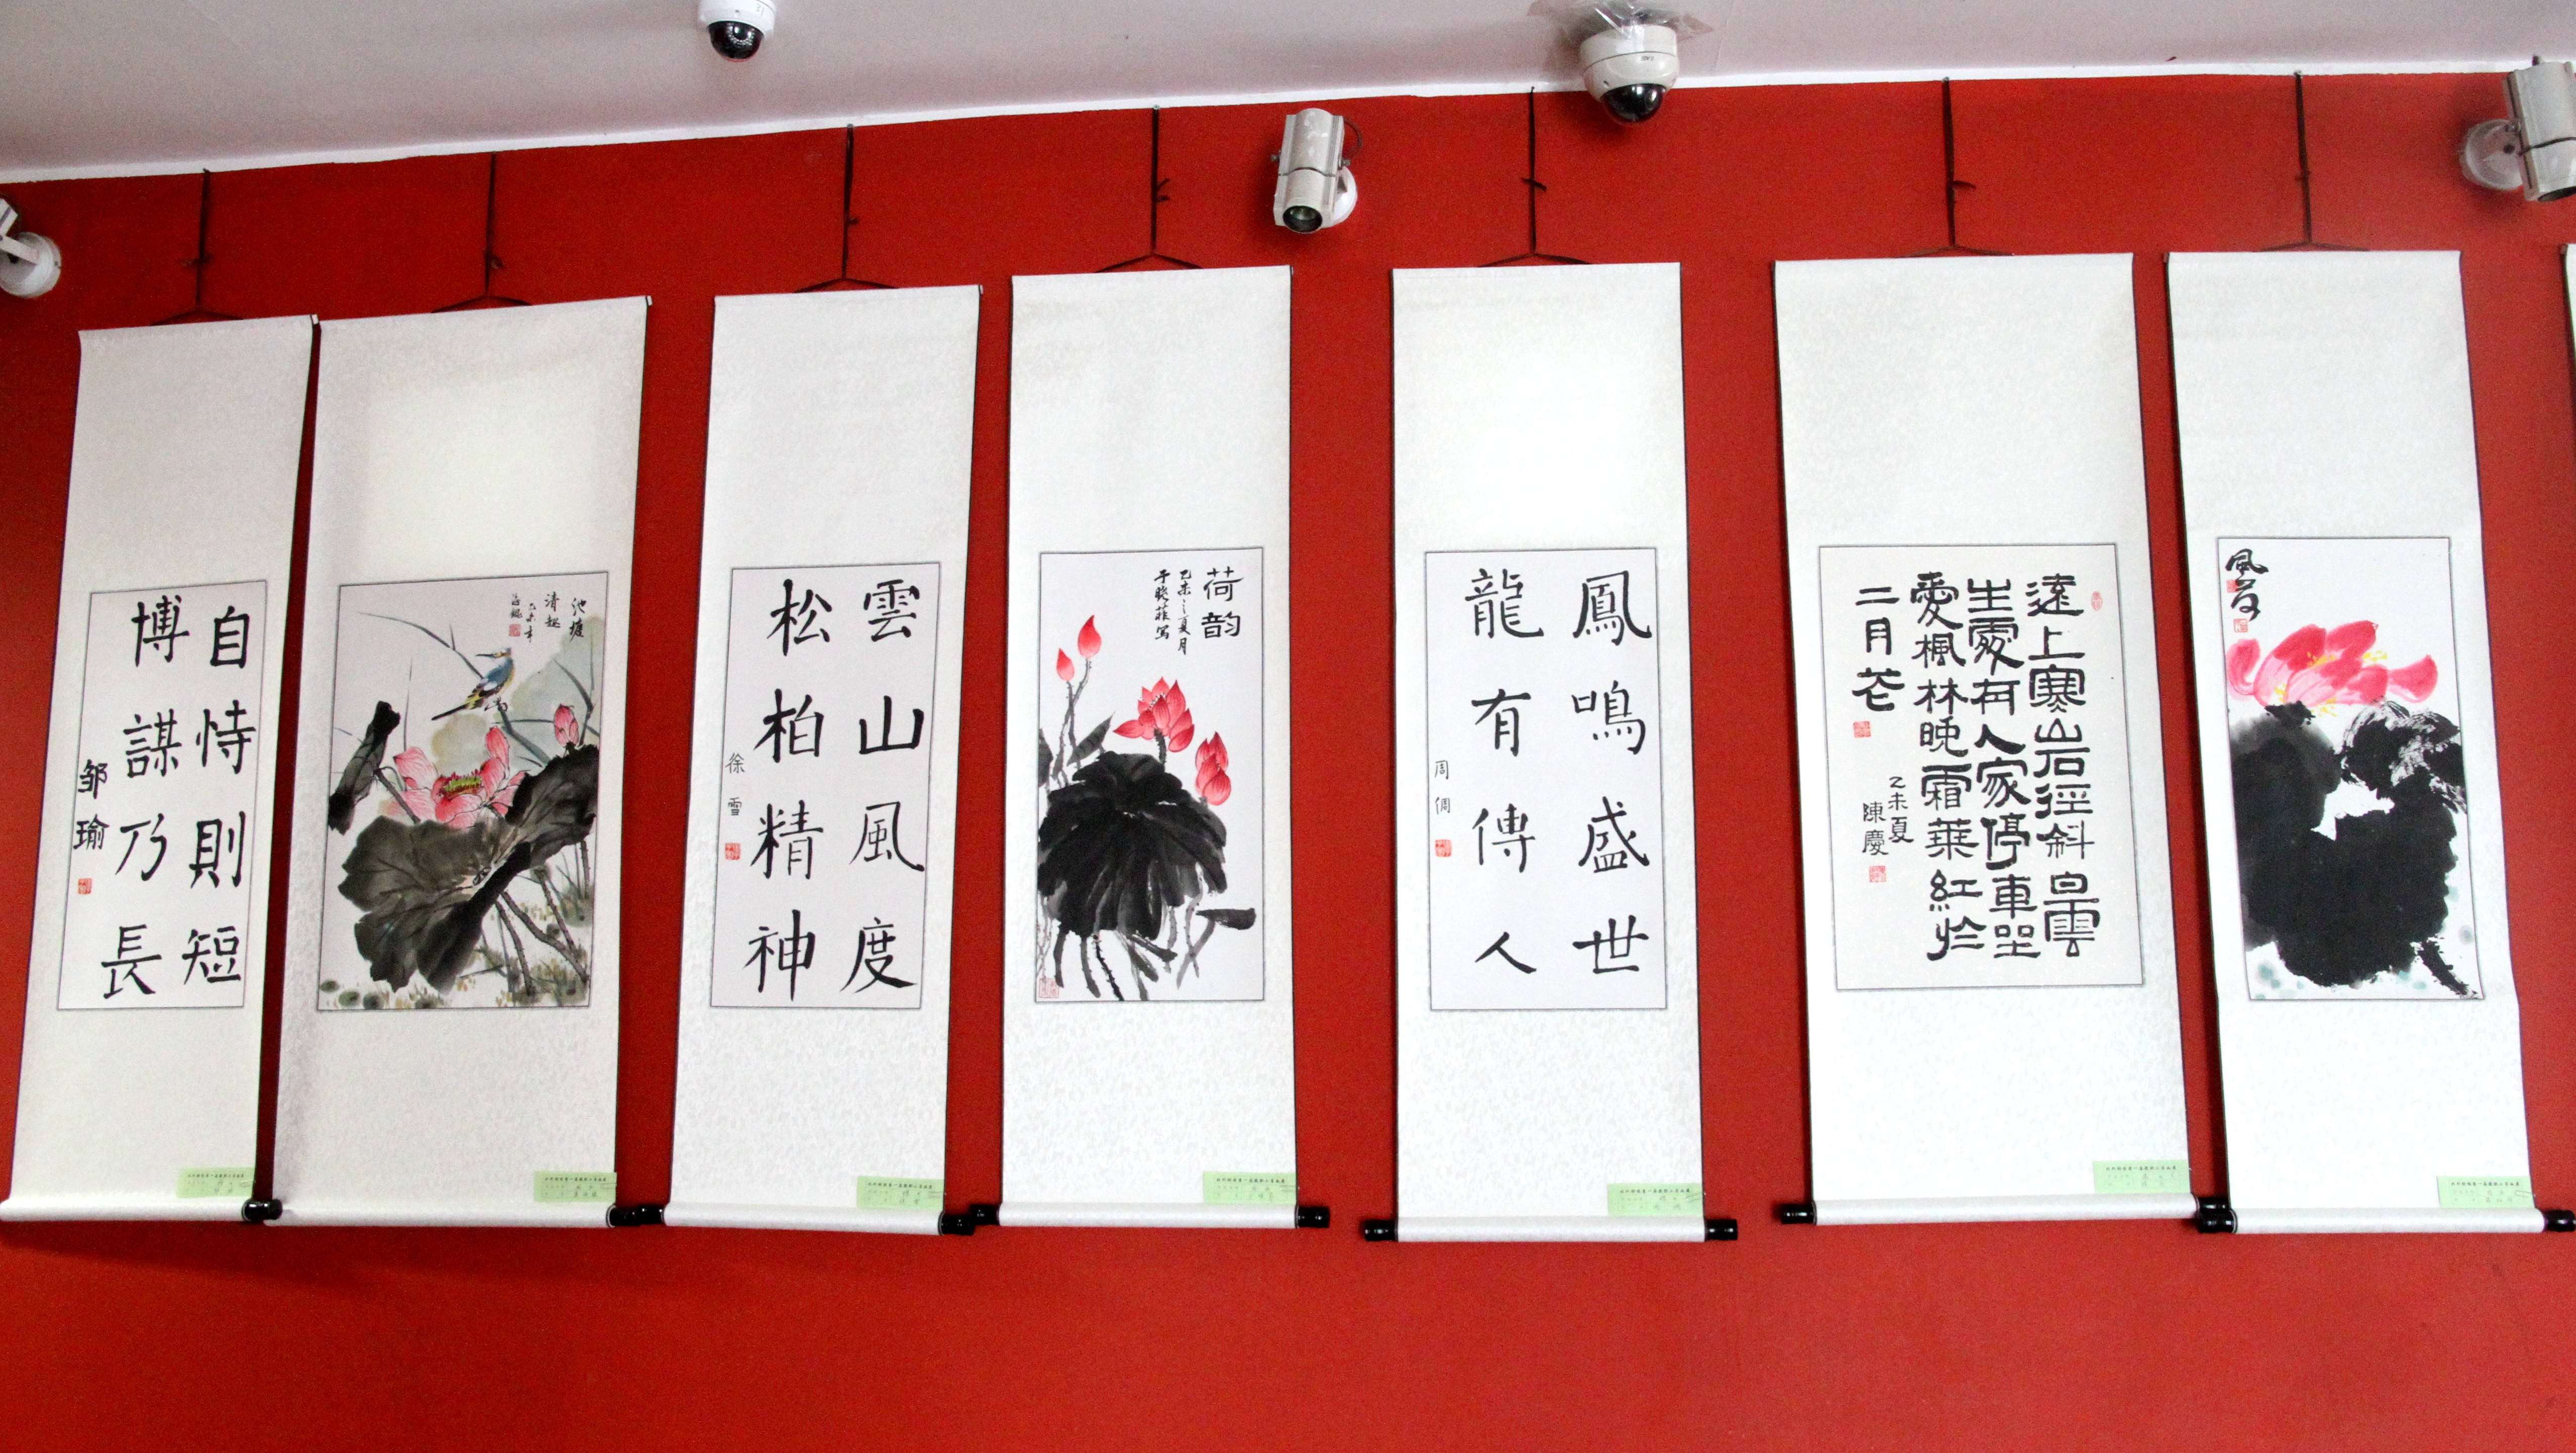 自恃則短
博謀乃長
邹瑜
池塘
清趣
乙未年
雲山風度
松柏精神
徐雪
荷韵
乙未之夏月
于晓菲写
鳳鳴盛世
龍有傳人
周倜
遠上寒山石徑斜白雲
生處有人家停車坐
愛楓林晚霜葉紅於
二月花
乙未夏
陳慶
風